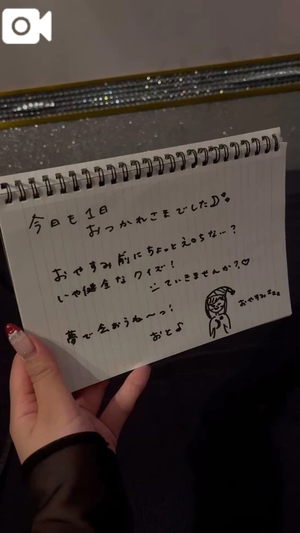 今日も1日
おつかれさまでした
おやすみ前にちょっとえっちな…?
いや健全なクイズ!
していきませんか?♡
夢で会おうね〜っ!
おと♪
おやすみzzz